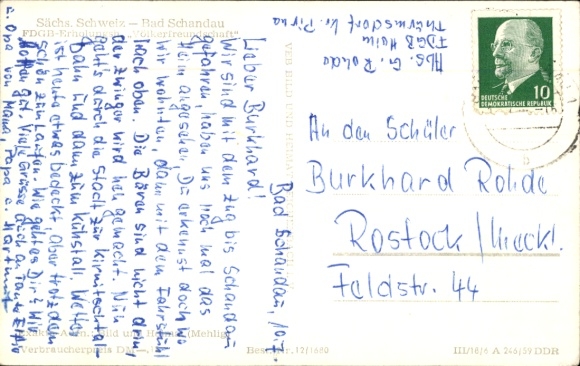 Sächs. Schweiz - Bad Schandau
FDGB-Erholungsheim "Völkerfreundschaft"
Bad Schandau, 10.7.
Lieber Burkhard!
Wir sind mit dem Zug bis Schandau
gefahren, haben uns noch mal das
Heim angesehen, Du erkennst doch wo
wir wohnten, dann mit dem Fahrstuhl
nach oben. Die Bären sind nicht drin,
der Zwinger wird neu gemacht. Nun
geht's durch die Stadt zur Kirnitschtal-
bahn und dann zum Kuhstall. Wetter
ist heute etwas bedeckt, aber trotzdem
schön zum Laufen. Wie geht es Dir? Wir
hoffen gut. Viele Grüsse auch an Tante
u. Opa von Mama, Papa u. Hartmut
Abs. G. Rohde
FDGB Heim
Thürmsdorf Kr. Pirna
10
DEUTSCHE
DEMOKRATISCHE REPUBLIK
An den Schüler
Burkhard Rohde
Rostock/Meckl.
Feldstr. 44
VEB BILD UND HEIMAT
(Mehlig)
Verbraucherpreis
Bestell-Nr. 12/1660
III/18/6 A 246/59 DDR